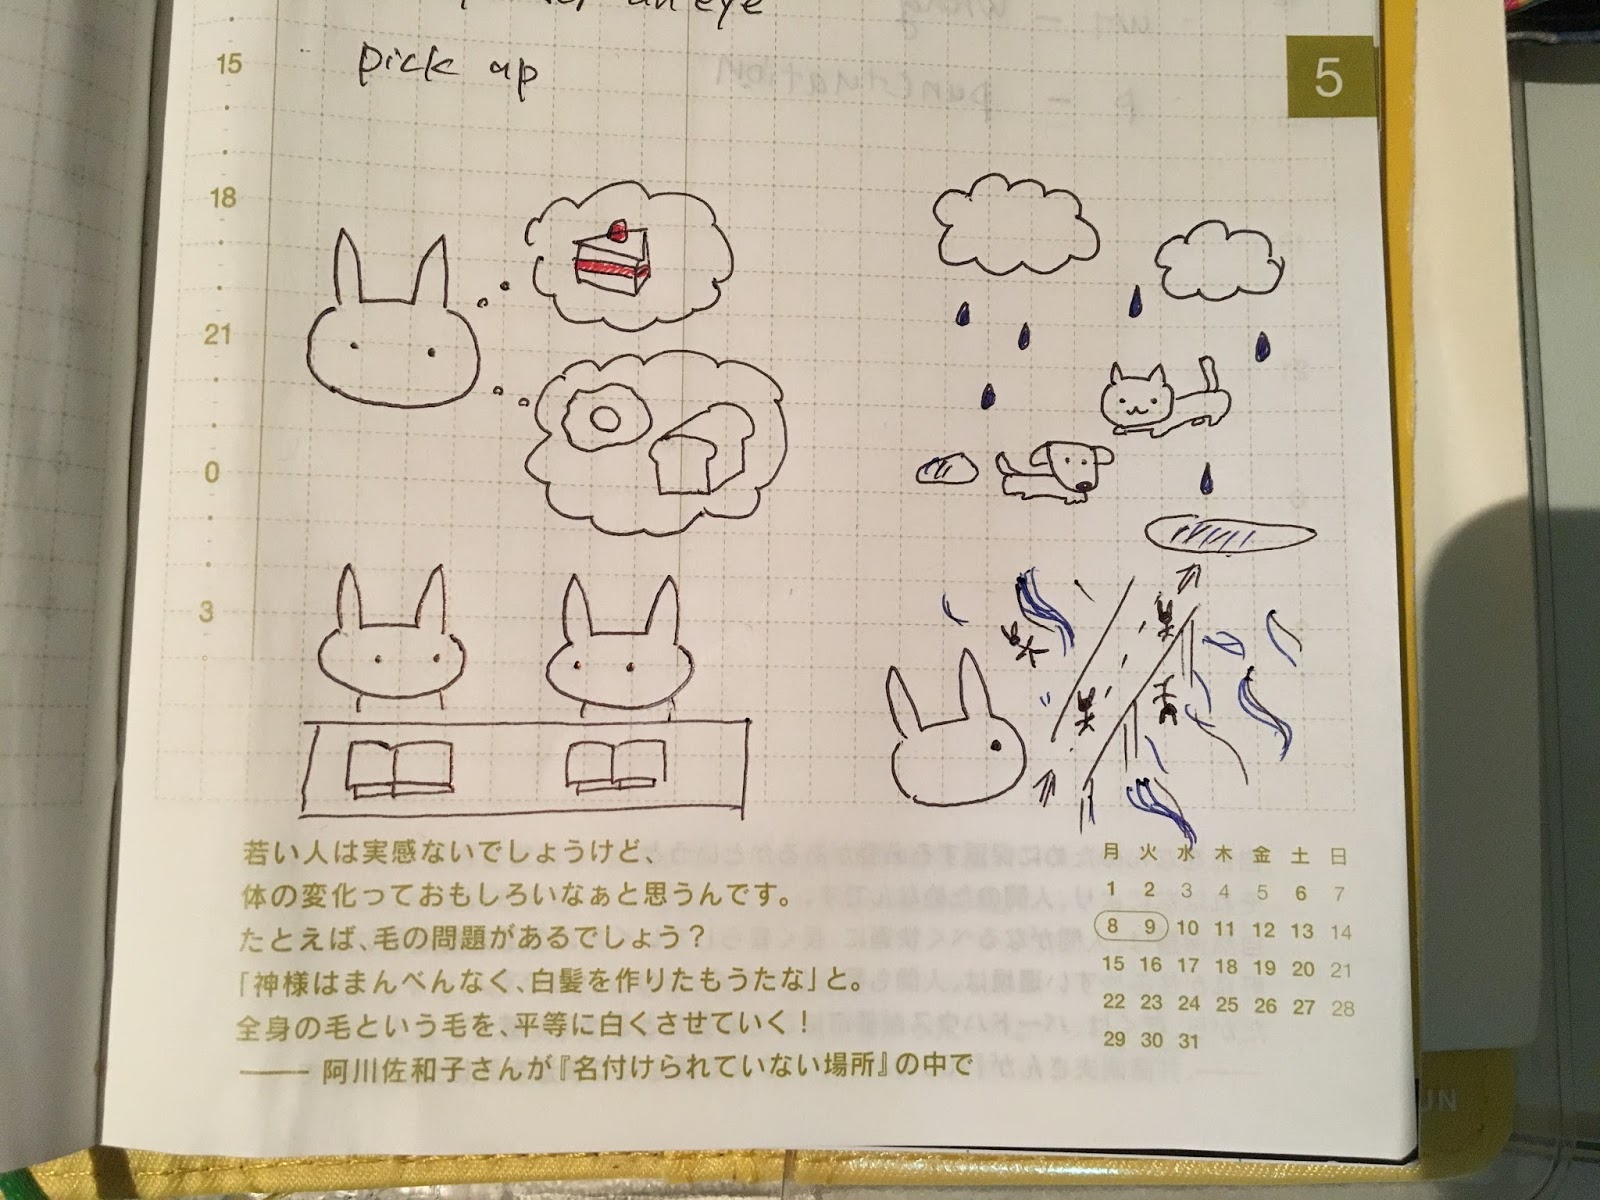 an eye
pick up
15
5
18
21
0
3
wrong
un
p - punctuation
若い人は実感ないでしょうけど、
体の変化っておもしろいなぁと思うんです。
たとえば、毛の問題があるでしょう?
「神様はまんべんなく、白髪を作りたもうたな」と。
全身の毛という毛を、平等に白くさせていく!
―― 阿川佐和子さんが『名付けられていない場所』の中で
月 火 水 木 金 土 日
1 2 3 4 5 6 7
8 9 10 11 12 13 14
15 16 17 18 19 20 21
22 23 24 25 26 27 28
29 30 31
UN